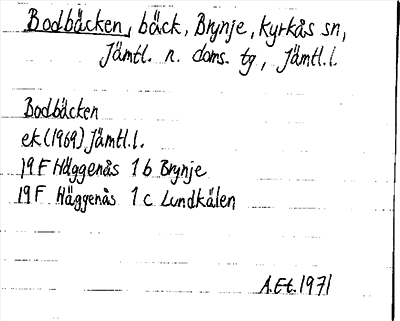 Bodbäcken, bäck, Brynje, Kyrkås sn,
Jämtl. n. doms. tg, Jämtl. l.
Bodbäcken
ek (1969) Jämtl. l.
19 F Häggenås 1 b Brynje
19 F Häggenås 1 c Lundkälen
A.Et. 1971